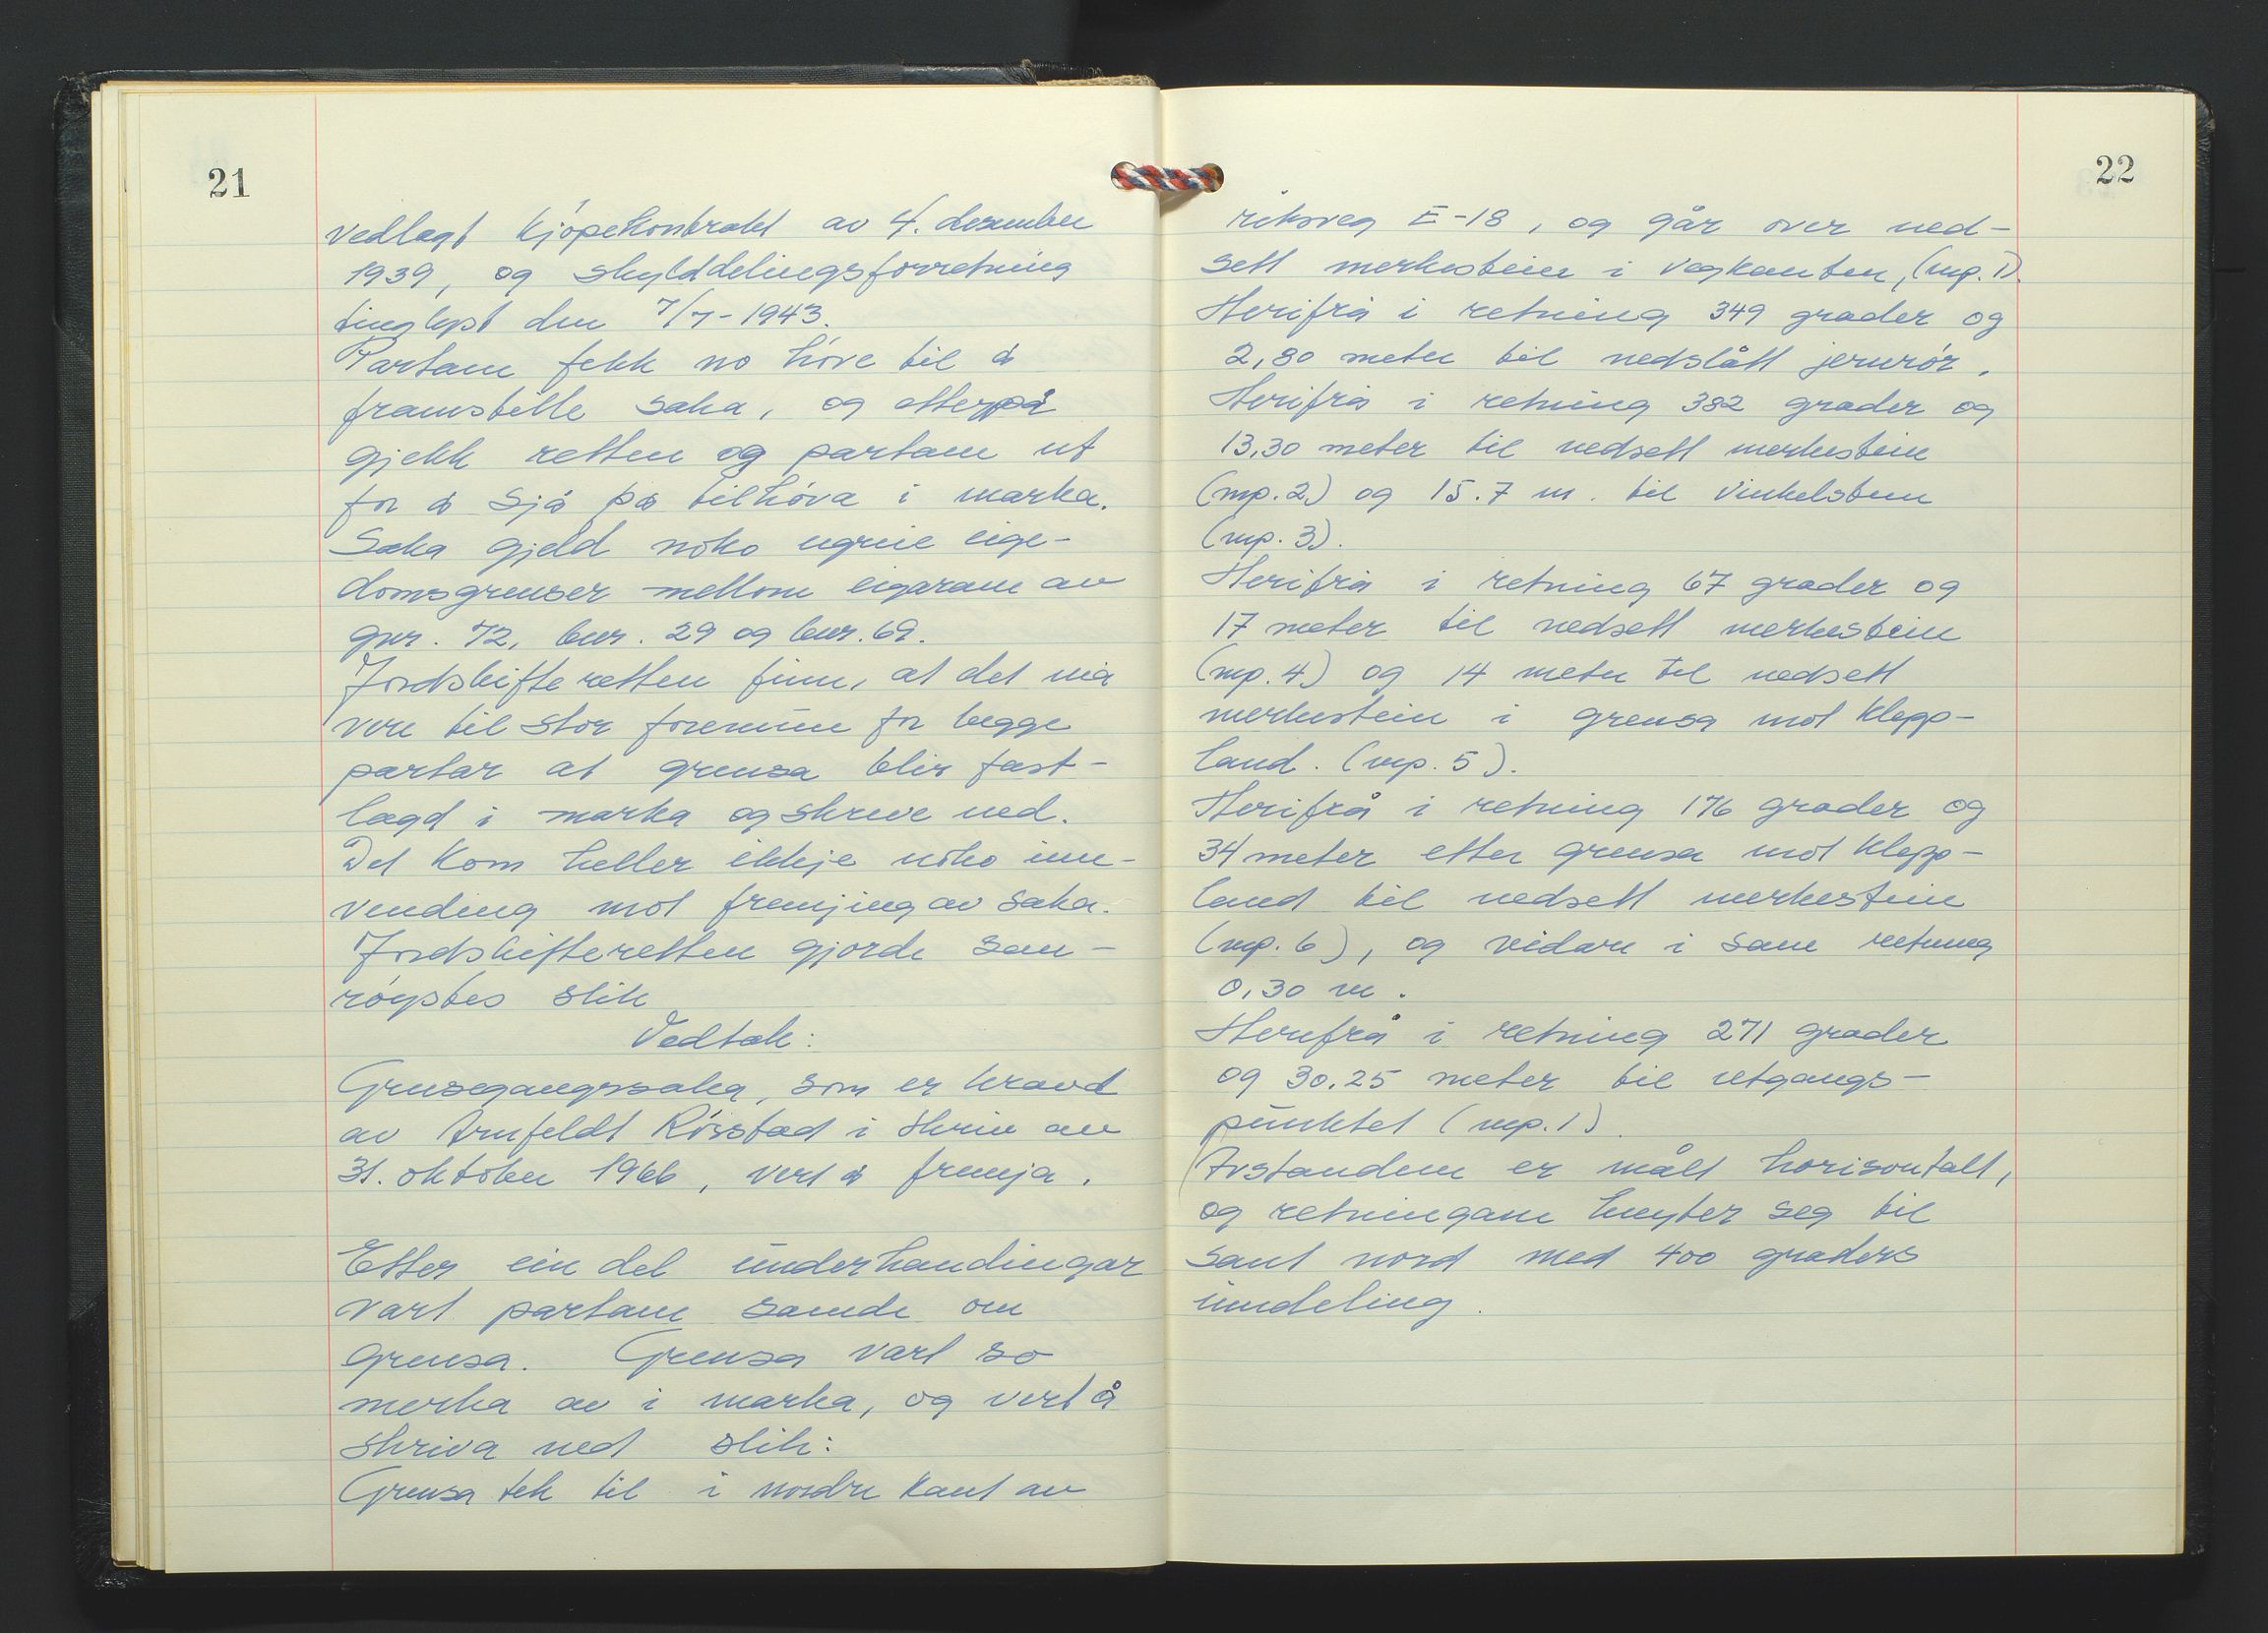 21
vedlagt kjøpekontrakt av 4. desember
1939, og skylddelingsforretning
tinglyst den 7/7-1943.
Partane fekk no høve til å
framstille saka, og etterpå
gjekk retten og partane ut
for å sjå på tilhøva i marka.
Saka gjeld noko ugreie eige-
domsgrenser mellom eigarane av
gnr. 72, bnr. 29 og bnr. 69.
Jordskifteretten finn, at det må
vere til stor foremun for begge
partar at grensa blir fast-
lagd i marka og skreve ned.
Det kom heller ikkje noko inn-
vending mot fremjing av saka.
Jordskifteretten gjorde sam-
røystes slik
Vedtak:
Grensegangssaka, som er kravd
av Arnfeldt Rösstad i skriv av
31. oktober 1966, vert å fremja.
Etter ein del underhandlingar
vart partane samde om
grensa. Grensa vart so
merka av i marka, og vert å
skriva ned slik:
Grensa tek til i nordre kant av
22
riksveg E-18, og går over ned-
sett merkestein i vegkanten, (mp. 1).
Herifrå i retning 349 grader og
2,80 meter til nedslått jernrør.
Herifrå i retning 382 grader og
13,30 meter til nedsett merkestein
(mp. 2) og 15.7 m. til vinkelstein
(mp. 3).
Herifrå i retning 67 grader og
17 meter til nedsett merkestein
(mp. 4) og 14 meter til nedsett
merkestein i grensa mot Klepp-
land. (mp. 5).
Herifrå i retning 176 grader og
34 meter etter grensa mot Klepp-
land til nedsett merkestein
(mp. 6), og vidare i same retning
0,30 m.
Herifrå i retning 271 grader
og 30.25 meter til utgangs-
punktet (mp. 1).
Avstandene er målt horisontalt,
og retningane knyter seg til
sant nord med 400 graders
inndeling.